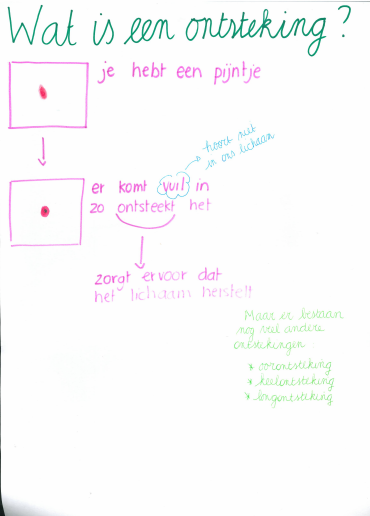 Wat is een ontsteking?
je hebt een pijntje
hoort niet
in ons lichaam
er komt vuil in
zo ontsteekt het
zorgt ervoor dat
het lichaam herstelt
Maar er bestaan
nog veel andere
ontstekingen
* oorontsteking
* keelontsteking
* longontsteking